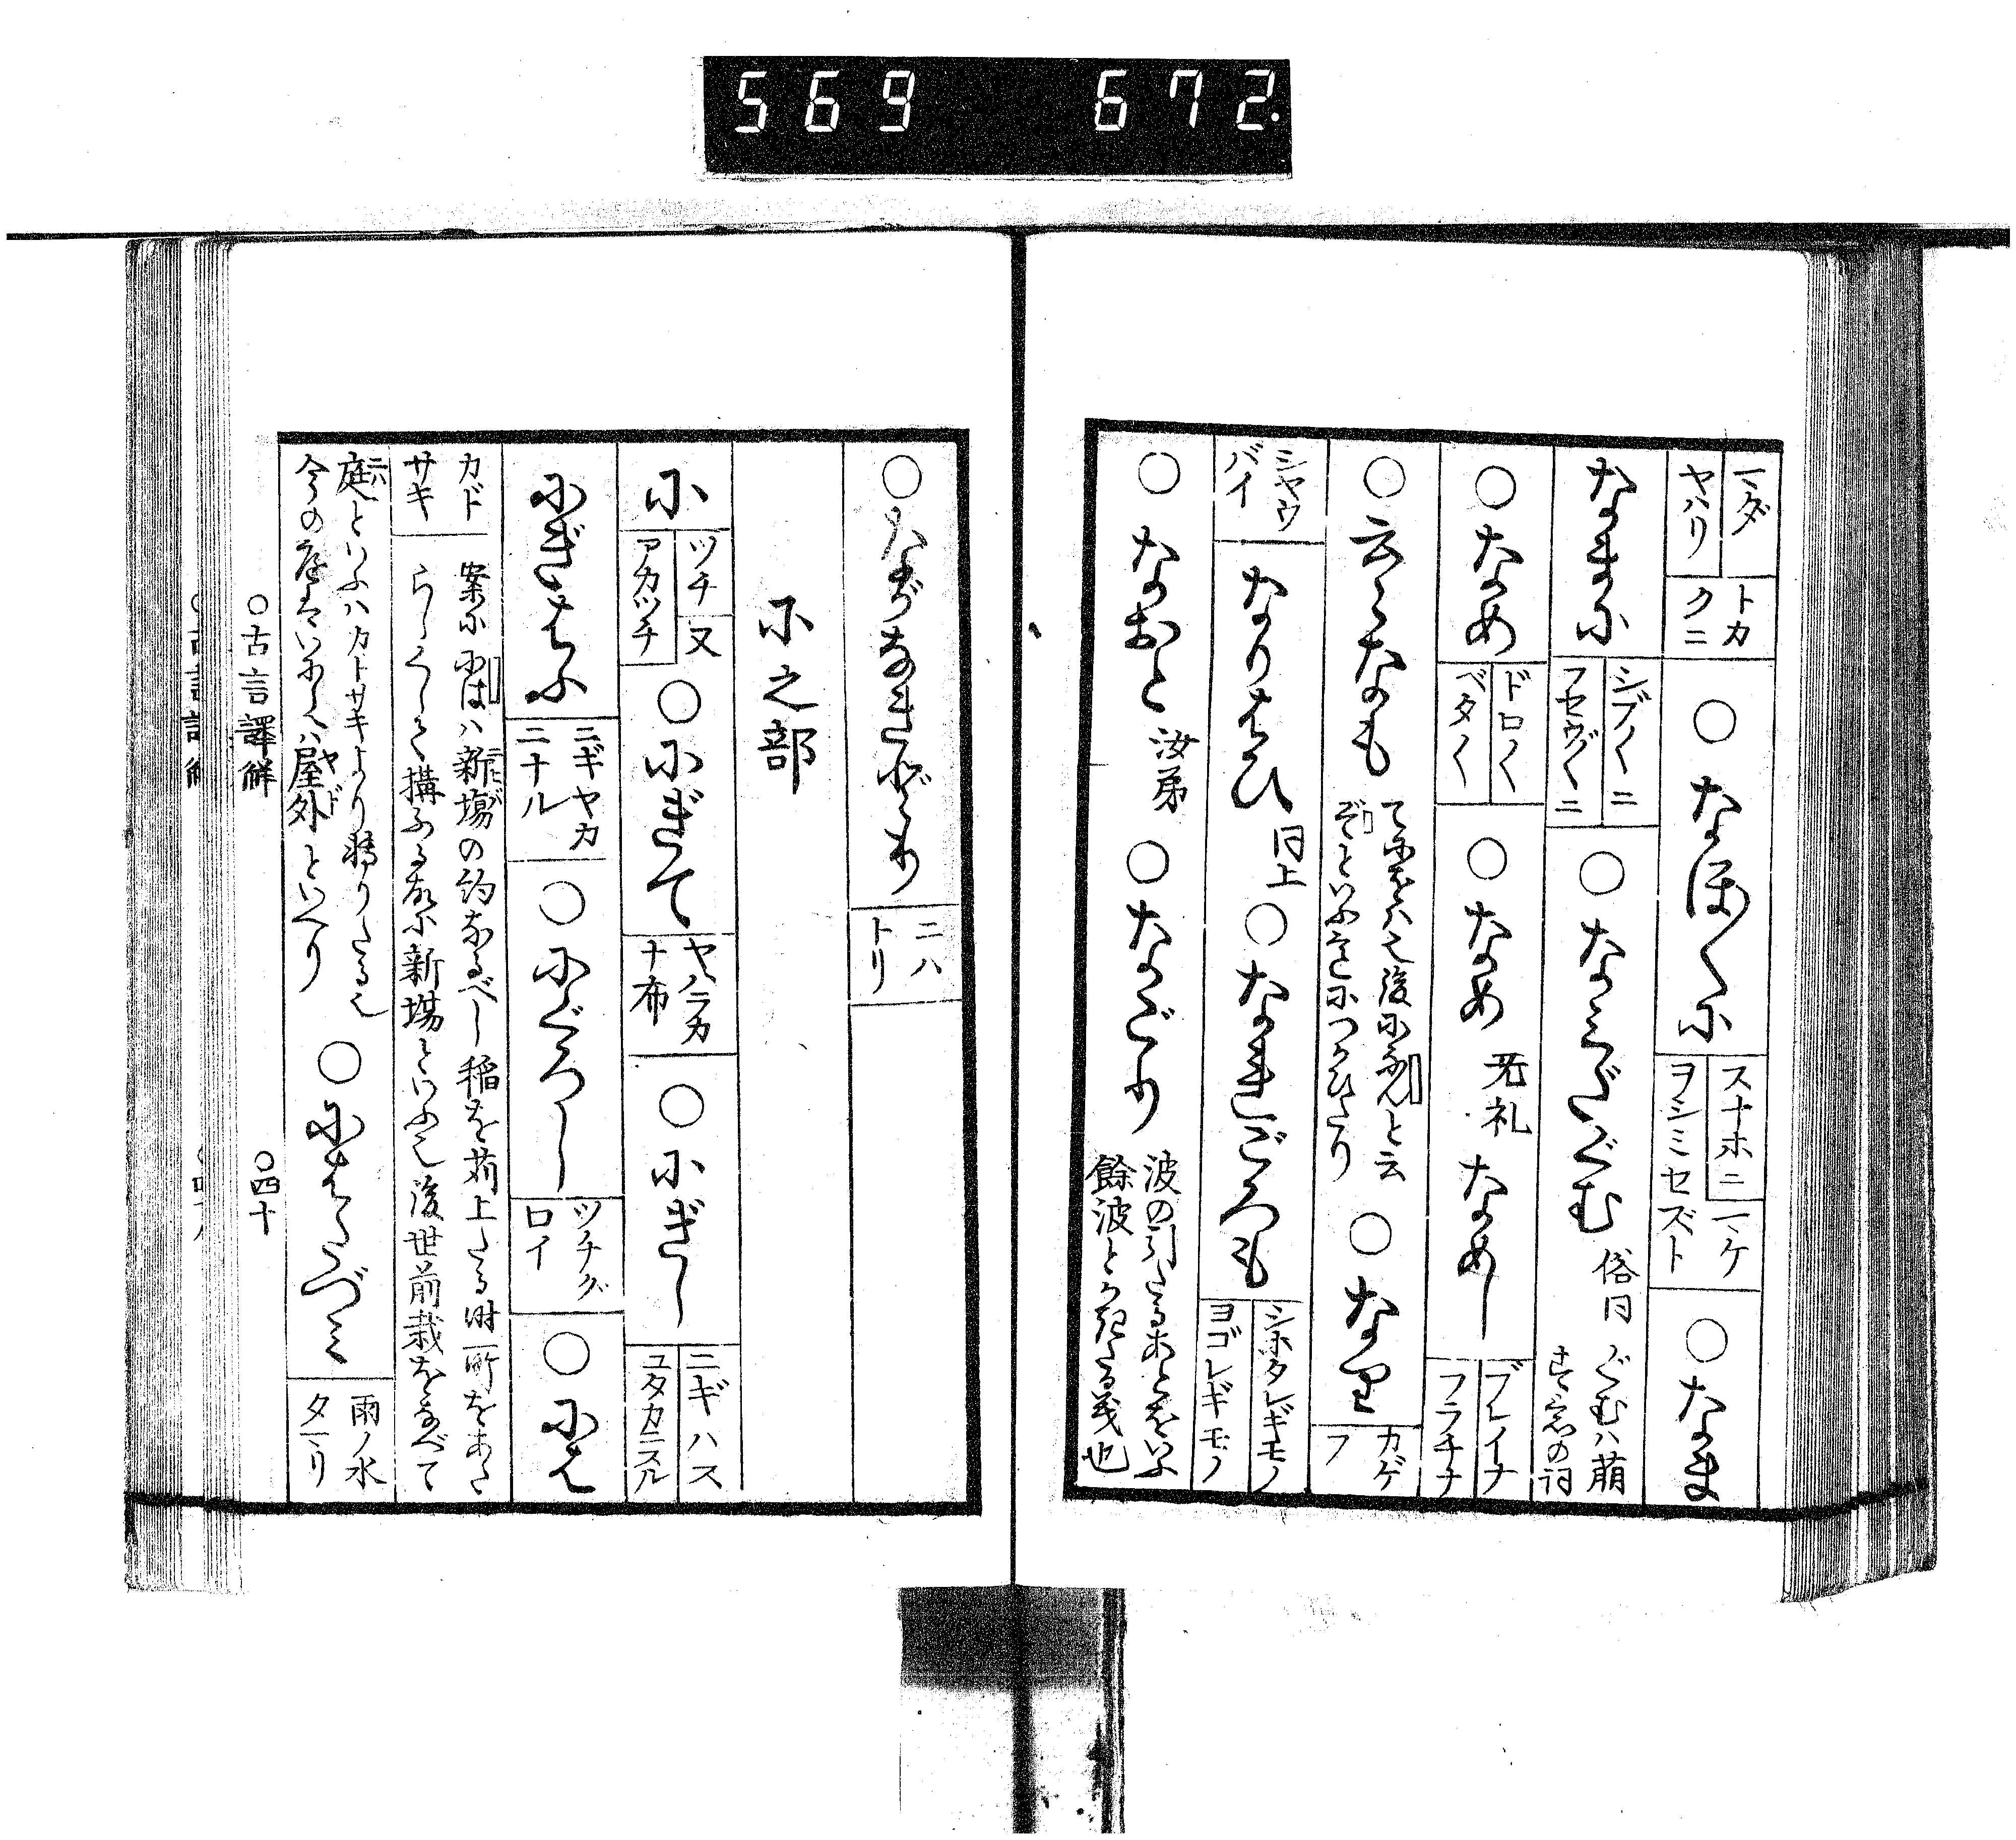 569 672
マダ ヤハリ トカクニ ○なほ〳〵に スナホニ マケヲシミセズト ○なま
なまに シブ〳〵ニ フセウ〴〵ニ ○なみだぐむ 俗同 ぐむハ萌す意の詞
○なめ ドロ〳〵 ベタ〳〵 ○なめ 无礼 なめし ブレイナ フラチナ
○云々なも てにをハ也後になんと云 ぞといふ意につかひたり ○なり カゲフ
シヤウバイ なりはひ 同上 ○なれごろも シホタレギモノ ヨゴレギモノ
○なおと 汝弟 ○なごり 波の引たるあとをいふ 餘波とかきたる義也
○ながなきどり ニハトリ
に之部
に ツチ 又 アカツチ ○にぎて ヤハラカナ布 ○にぎし ニギハス ユタカニスル
にぎはふ ニギヤカニナル ○にぐろし ツチグロイ ○には
カドサキ 案ににはハ新場の約なるべし稲を苅上たる時一所をあた
らしくして構ふる故に新場といふ也後世前栽をなべて
庭といふハカドサキより轉りたる也
今の庭をいにしへハ屋外といへり ○にはたづみ 雨ノ水タマリ
○古言譯解 ○四十